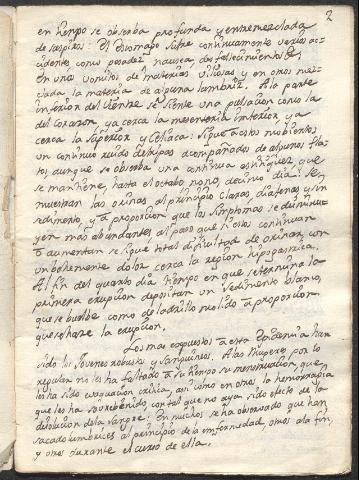 2
en tiempo se observa profunda y entremezclada
de suspiros: El Estomago sufre continuamente varios ac-
cidentes como pesadez, nausea, desfallecimientos &c.
En unos vomitos de materias viliosas y en otros mez-
clada la materia de alguna lumbriz. A la parte
inferior del vientre se siente una pulsacion como la
del corazon, ya cerca la mesenterica inferior, ya
cerca la superior, y Celiaca: sigue a estos movimientos
un continuo ruido de tripas acompañados de algunos fla-
tos aunque se observa una continua estriñiquez que
se mantiene, hasta el octabo nono, decimo dia: Se
muestran las orinas al principio claras, diafenas, y sin
sedimento, y a proporcion que los simptomas se disminu-
yen mas abundantes, al paso que si estos continuan
o aumentan se sigue total dificultad de orinar, con
un behemente dolor cerca la region hipogastrica.
Al fin del quarto dia tiempo en que se termina la
primera erupcion depositan un sedimento blanco,
que se buelbe como de ladrillo molido a proporcion
que se hace la erupcion.
Los mas expuestos a esta Epidemia han
sido los Jovenes robustos y sanguineos. A las Mugeres por lo
regular no les ha faltado a su tiempo su menstruacion, que
les ha sido evaquacion critica, asi como en otros la hemorragia
que les ha sobrebenido con tal que no aya sido efecto de la
disolucion de la sangre: En muchos se ha observado que han
sacado lumbrices al principio de la enfermedad, otros a la fin,
y otros durante el curso de ella.